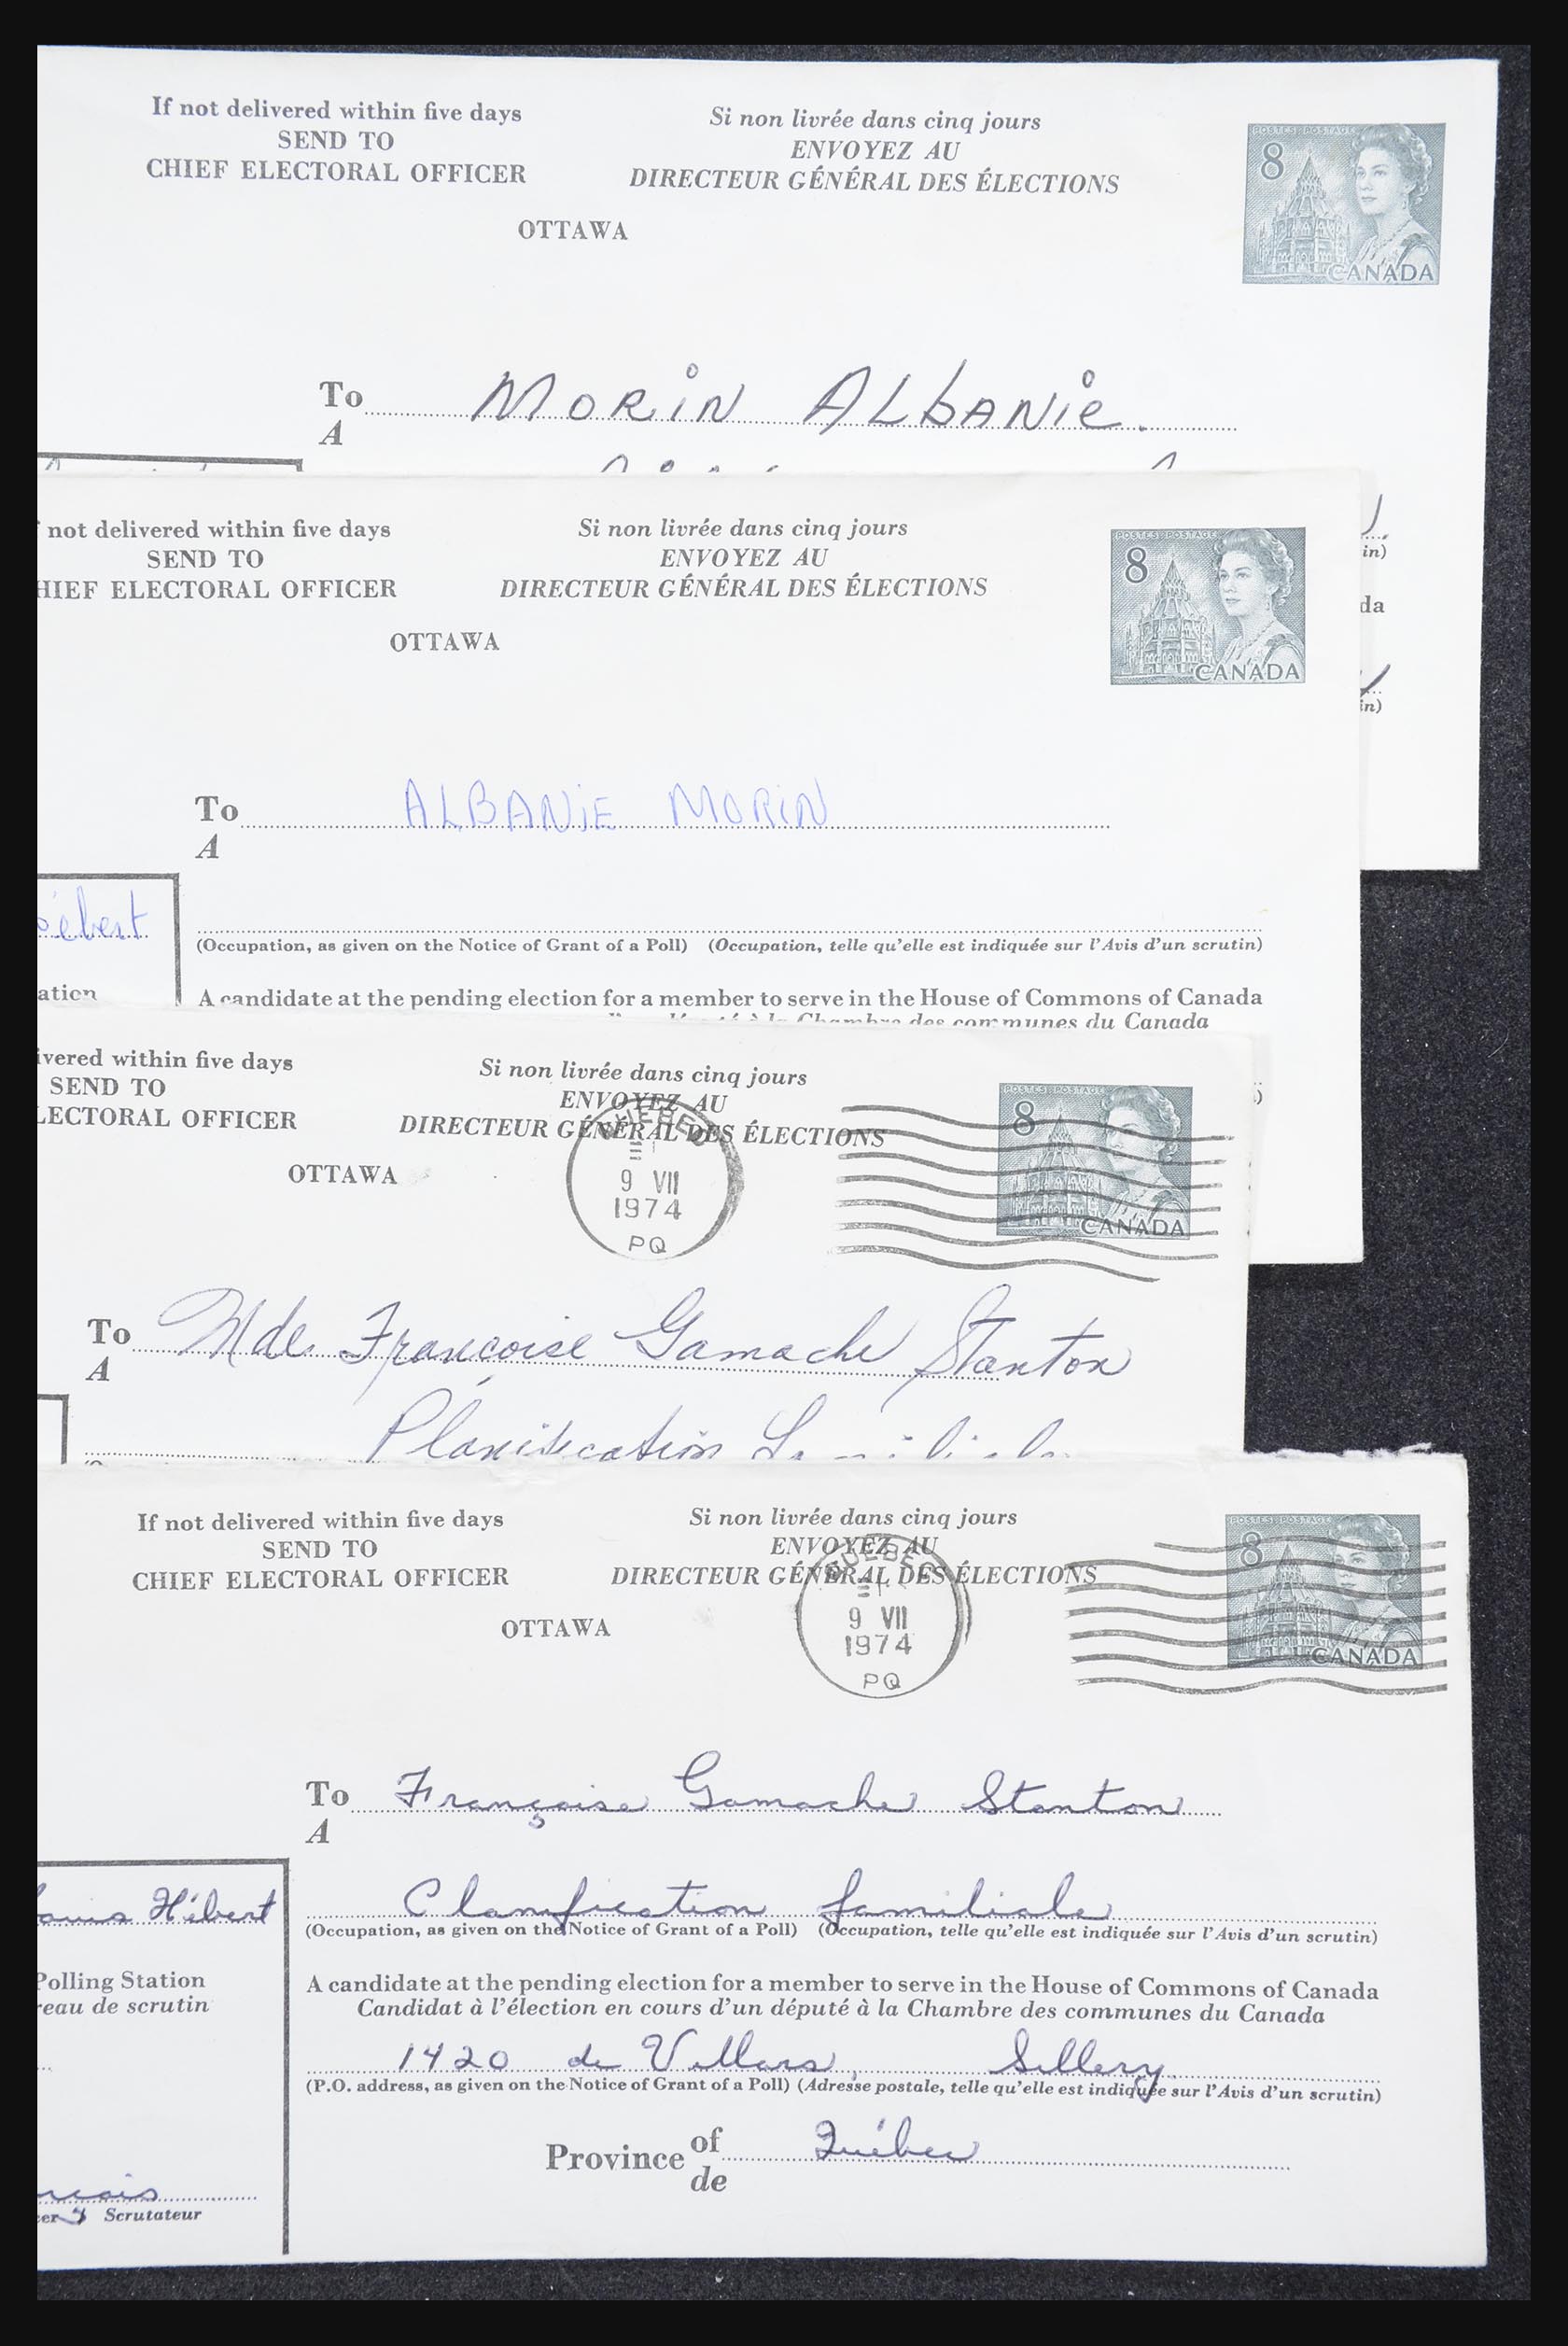 If not delivered within five days
SEND TO
CHIEF ELECTORAL OFFICER
Si non livrée dans cinq jours
ENVOYEZ AU
DIRECTEUR GÉNÉRAL DES ÉLECTIONS
OTTAWA
POSTES POSTAGE
8
CANADA
To MORIN ALbANie.
A
in)
da
in)
not delivered within five days
SEND TO
HIEF ELECTORAL OFFICER
Si non livrée dans cinq jours
ENVOYEZ AU
DIRECTEUR GÉNÉRAL DES ÉLECTIONS
OTTAWA
POSTES POSTAGE
8
CANADA
To ALBANiE MORiN
A
ébert
(Occupation, as given on the Notice of Grant of a Poll) (Occupation, telle qu'elle est indiquée sur l'Avis d'un scrutin)
ation
A candidate at the pending election for a member to serve in the House of Commons of Canada
à la Chambre des communes du Canada
ivered within five days
SEND TO
LECTORAL OFFICER
Si non livrée dans cinq jours
ENVOYEZ AU
DIRECTEUR GÉNÉRAL DES ÉLECTIONS
OTTAWA
QUEBEC
9 VII
1974
PQ
POSTES POSTAGE
8
CANADA
To Mde Françoise Gamache Stanton
A
Planification
If not delivered within five days
SEND TO
CHIEF ELECTORAL OFFICER
Si non livrée dans cinq jours
ENVOYEZ AU
DIRECTEUR GÉNÉRAL DES ÉLECTIONS
OTTAWA
QUEBEC
9 VII
1974
PQ
POSTES POSTAGE
8
CANADA
To Françoise Gamache Stanton
A
ouis Hébert
Planification familiale
(Occupation, as given on the Notice of Grant of a Poll) (Occupation, telle qu'elle est indiquée sur l'Avis d'un scrutin)
Polling Station
reau de scrutin
A candidate at the pending election for a member to serve in the House of Commons of Canada
Candidat à l'élection en cours d'un député à la Chambre des communes du Canada
1420 de Villars, Sillery
(P.O. address, as given on the Notice of Grant of a Poll) (Adresse postale, telle qu'elle est indiquée sur l'Avis d'un scrutin)
Province of Québec
de
cer Scrutateur